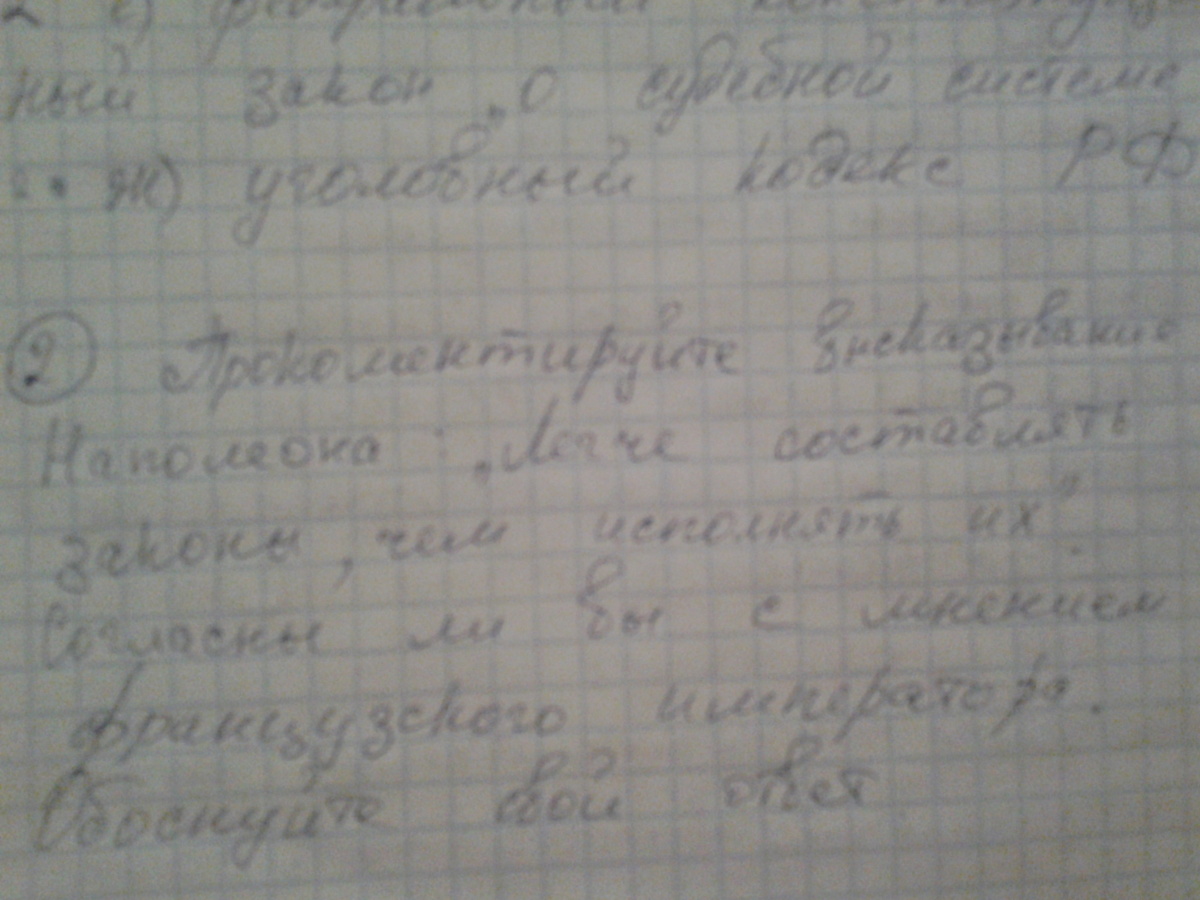 2 е) федеральный
ный закон „О судебной системе
ж) уголовный кодекс РФ
2 Прокоментируйте высказывание
Наполеона: „Легче составлять
законы, чем исполнять их".
Согласны ли вы с мнением
французского императора.
Обоснуйте свой ответ